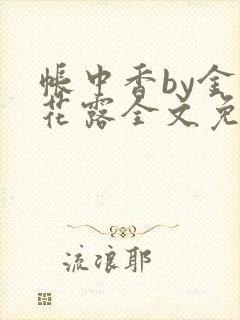 帐中香by金
花露全文免
流浪耶